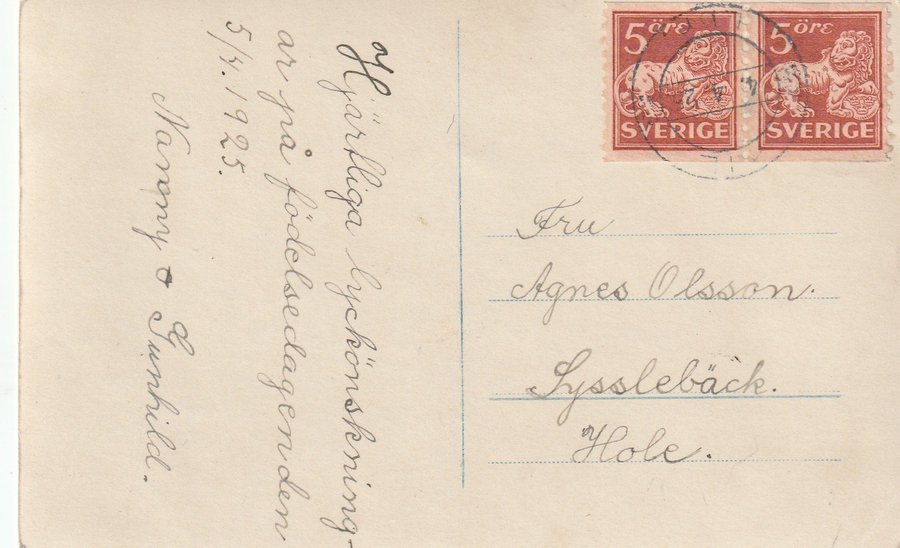 Hjärtliga lyckönskning-
ar på födelsedagen den
5/4. 1925.
Nanny & Gunhild.
5 öre
SVERIGE
5 öre
SVERIGE
4. 4. 25
Fru
Agnes Olsson.
Sysslebäck.
Hole.